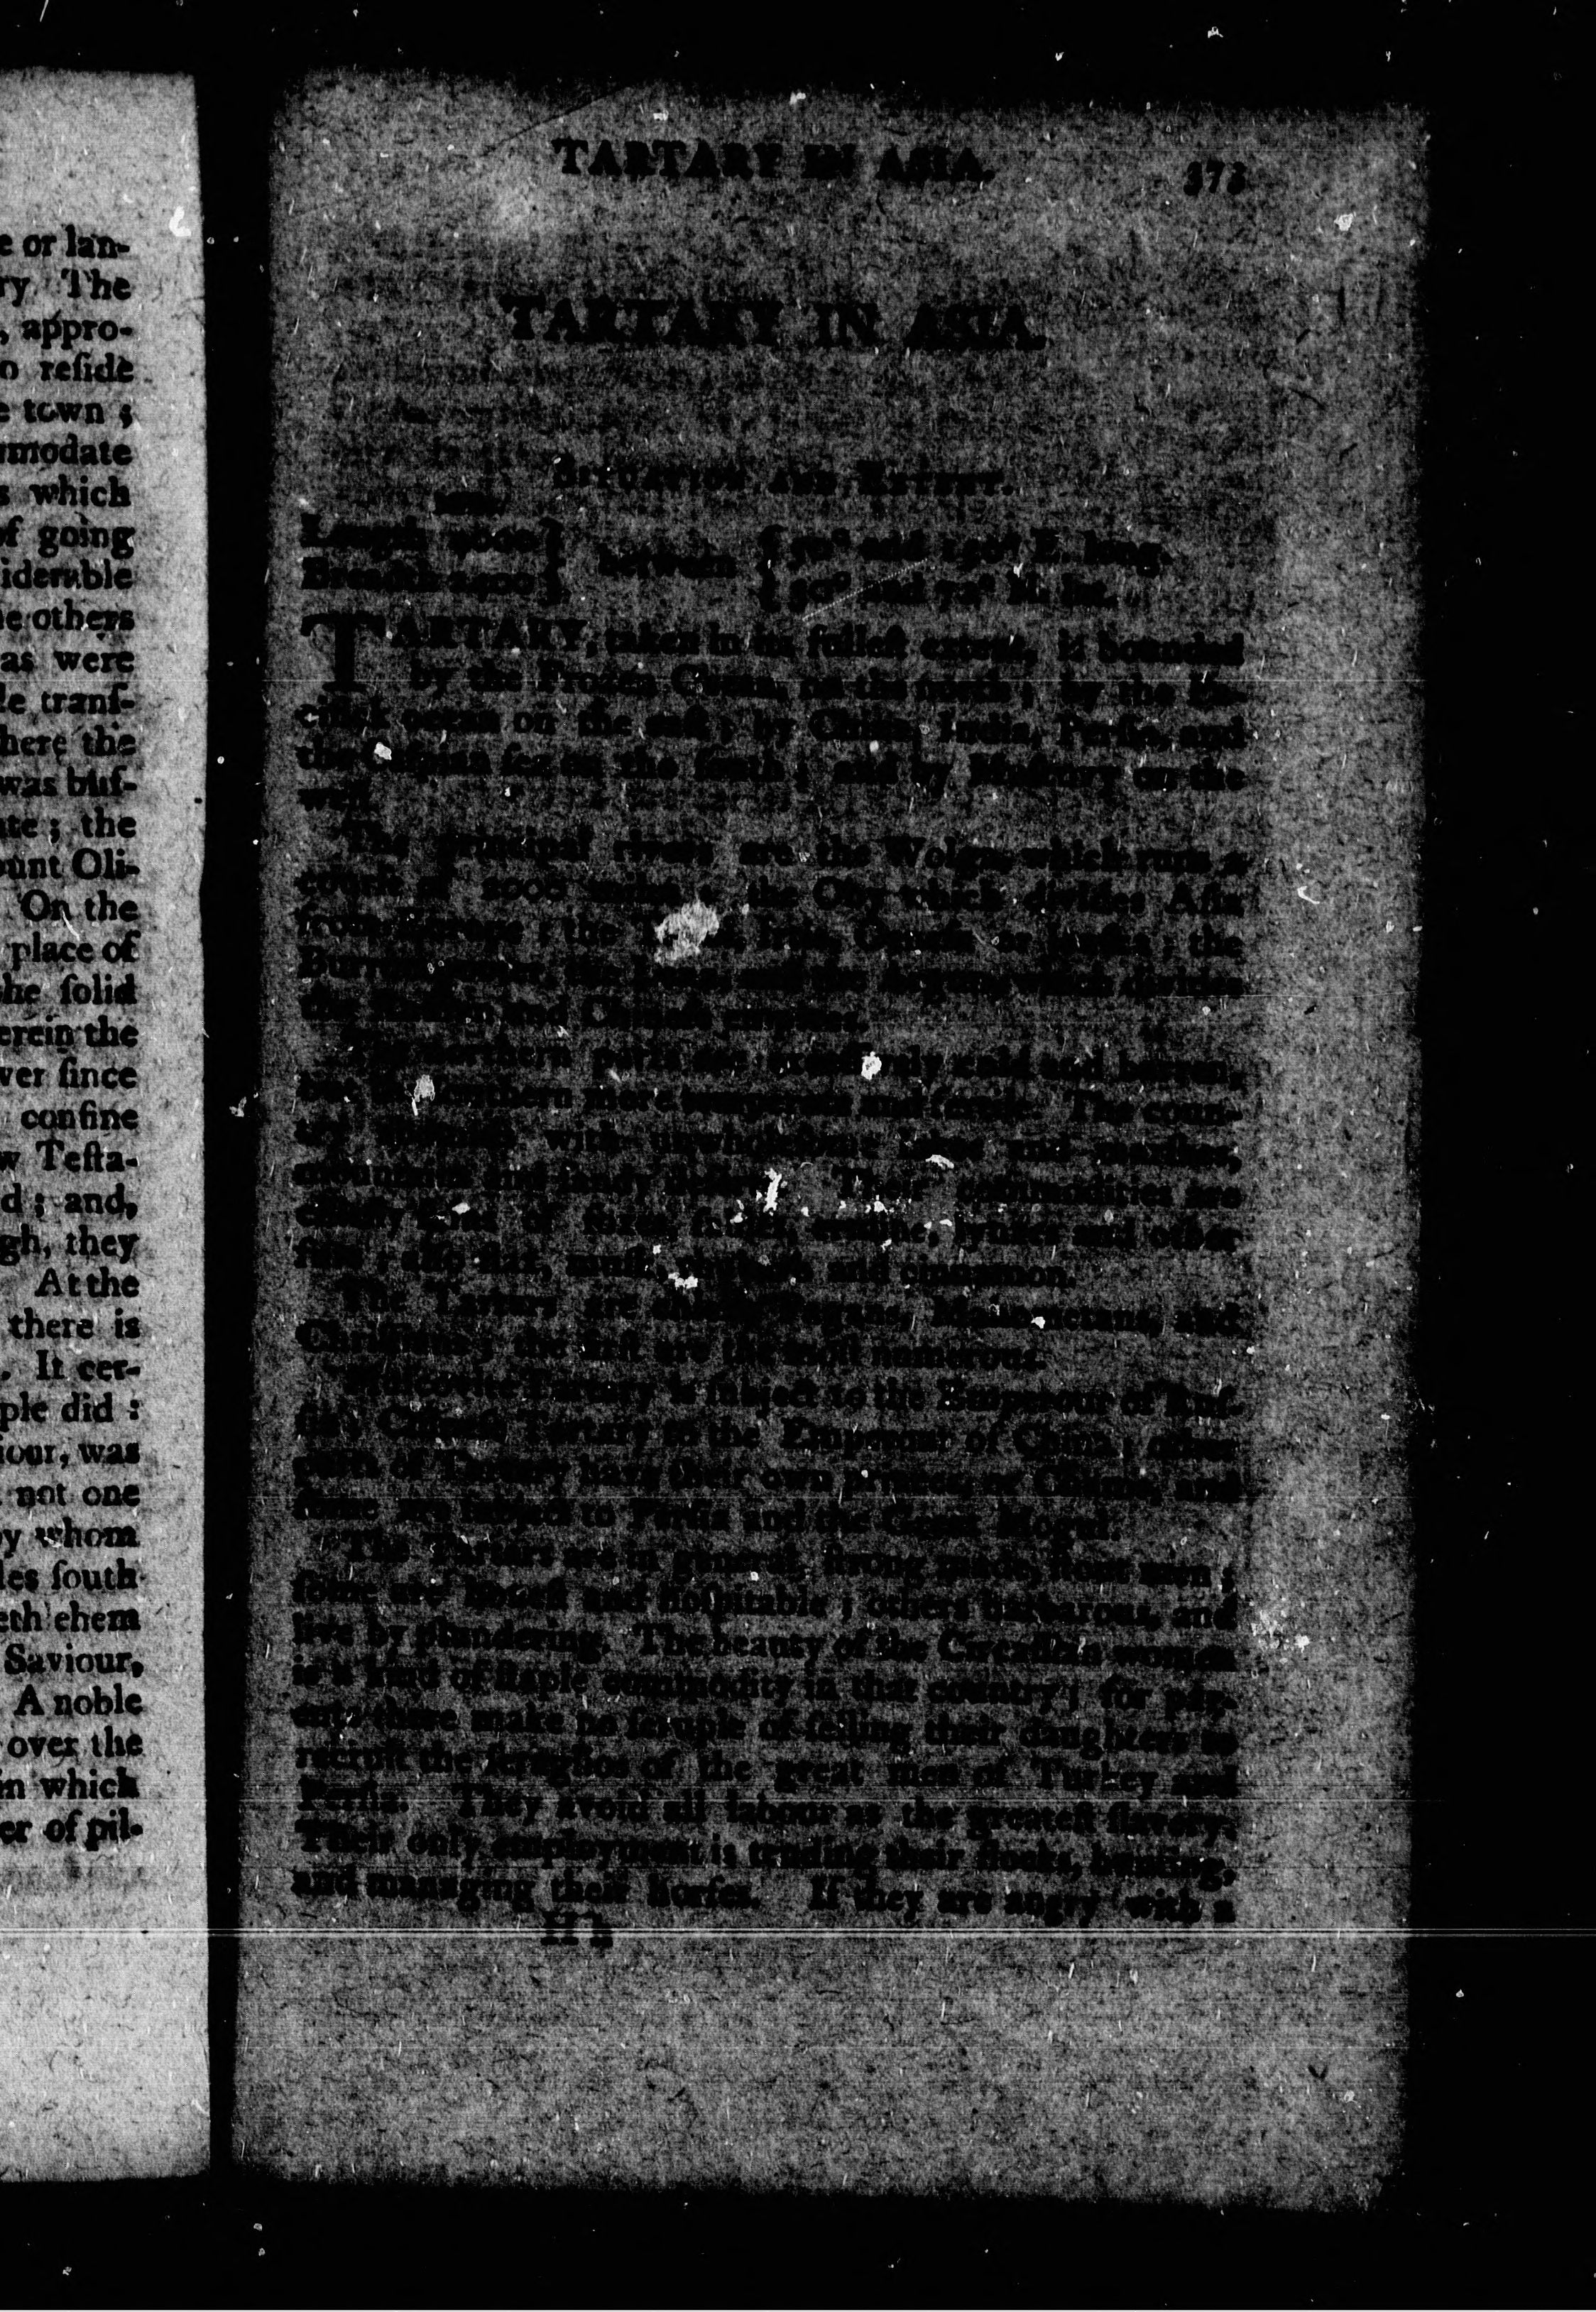 e or lan-
ry The
, appro-
o reſide
e town ;
mmodate
s which
of going
iderable
he others
as were
le tranſ-
here the
was buſ-
ate ; the
ount Oli-
On the
place of
he ſolid
erein the
ver ſince
confine
w Teſta-
d ; and,
gh, they
At the
there is
. It cer-
ple did :
iour, was
not one
by whom
les ſouth
eth ehem
Saviour,
A noble
over the
in which
er of pil-
TARTARY IN ASIA. 373
TARTARY IN ASIA.
SITUATION AND EXTENT.
Length between and E. long.
Breadth and N. lat.
TARTARY, taken in its fulleſt extent, is bounded
by the Frozen Ocean, on the north ; by the Pa-
cifick ocean on the eaſt ; by China, India, Perſia, and
the Caſpian ſea on the ſouth ; and by Muſcovy on the
weſt.
The principal rivers are the Wolga, which runs a
courſe of 2000 miles ; the Oby which divides Aſia
from Europe ; the ; the
the and the Argun, which divides
the and Chineſe empires.
northern parts are cold and barren,
but the more temperate and fertile. The coun-
try with unwholeſome lakes and marſhes,
mountains and ſandy Their commodities are
chiefly of foxes, ermine, lynxes and other
furs ; alſo flax, muſk, and cinnamon.
The Tartars are Pagans, Mahometans, and
Chriſtians ; the firſt are the moſt numerous.
Muſcovite Tartary is ſubject to the Emperour of Ruſ-
ſia ; Chineſe Tartary to the Emperour of China ; other
parts of Tartary have their own princes or and
ſome are ſubject to Perſia and the Great Mogul.
The Tartars are in general ſtrong made, ſtout men ;
ſome are honeſt and hoſpitable ; others barbarous, and
live by plundering. The beauty of the Circaſſian women
is a kind of ſtaple commodity in that country ; for par-
ents there make no ſcruple of ſelling their daughters to
recruit the ſeraglios of the great men of Turkey and
Perſia. They avoid all labour as the greateſt ſlavery.
Their only employment is tending their flocks, hunting,
and managing their horſes. If they are angry with a
H h